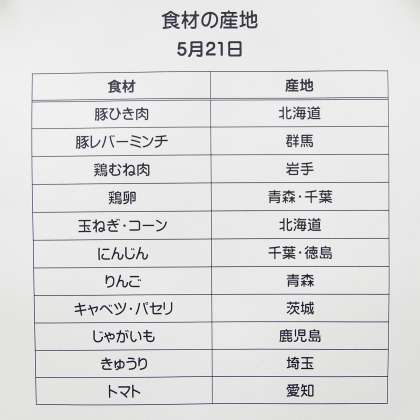 食材の産地
5月21日
食材 産地
豚ひき肉 北海道
豚レバーミンチ 群馬
鶏むね肉 岩手
鶏卵 青森・千葉
玉ねぎ・コーン 北海道
にんじん 千葉・徳島
りんご 青森
キャベツ・パセリ 茨城
じゃがいも 鹿児島
きゅうり 埼玉
トマト 愛知